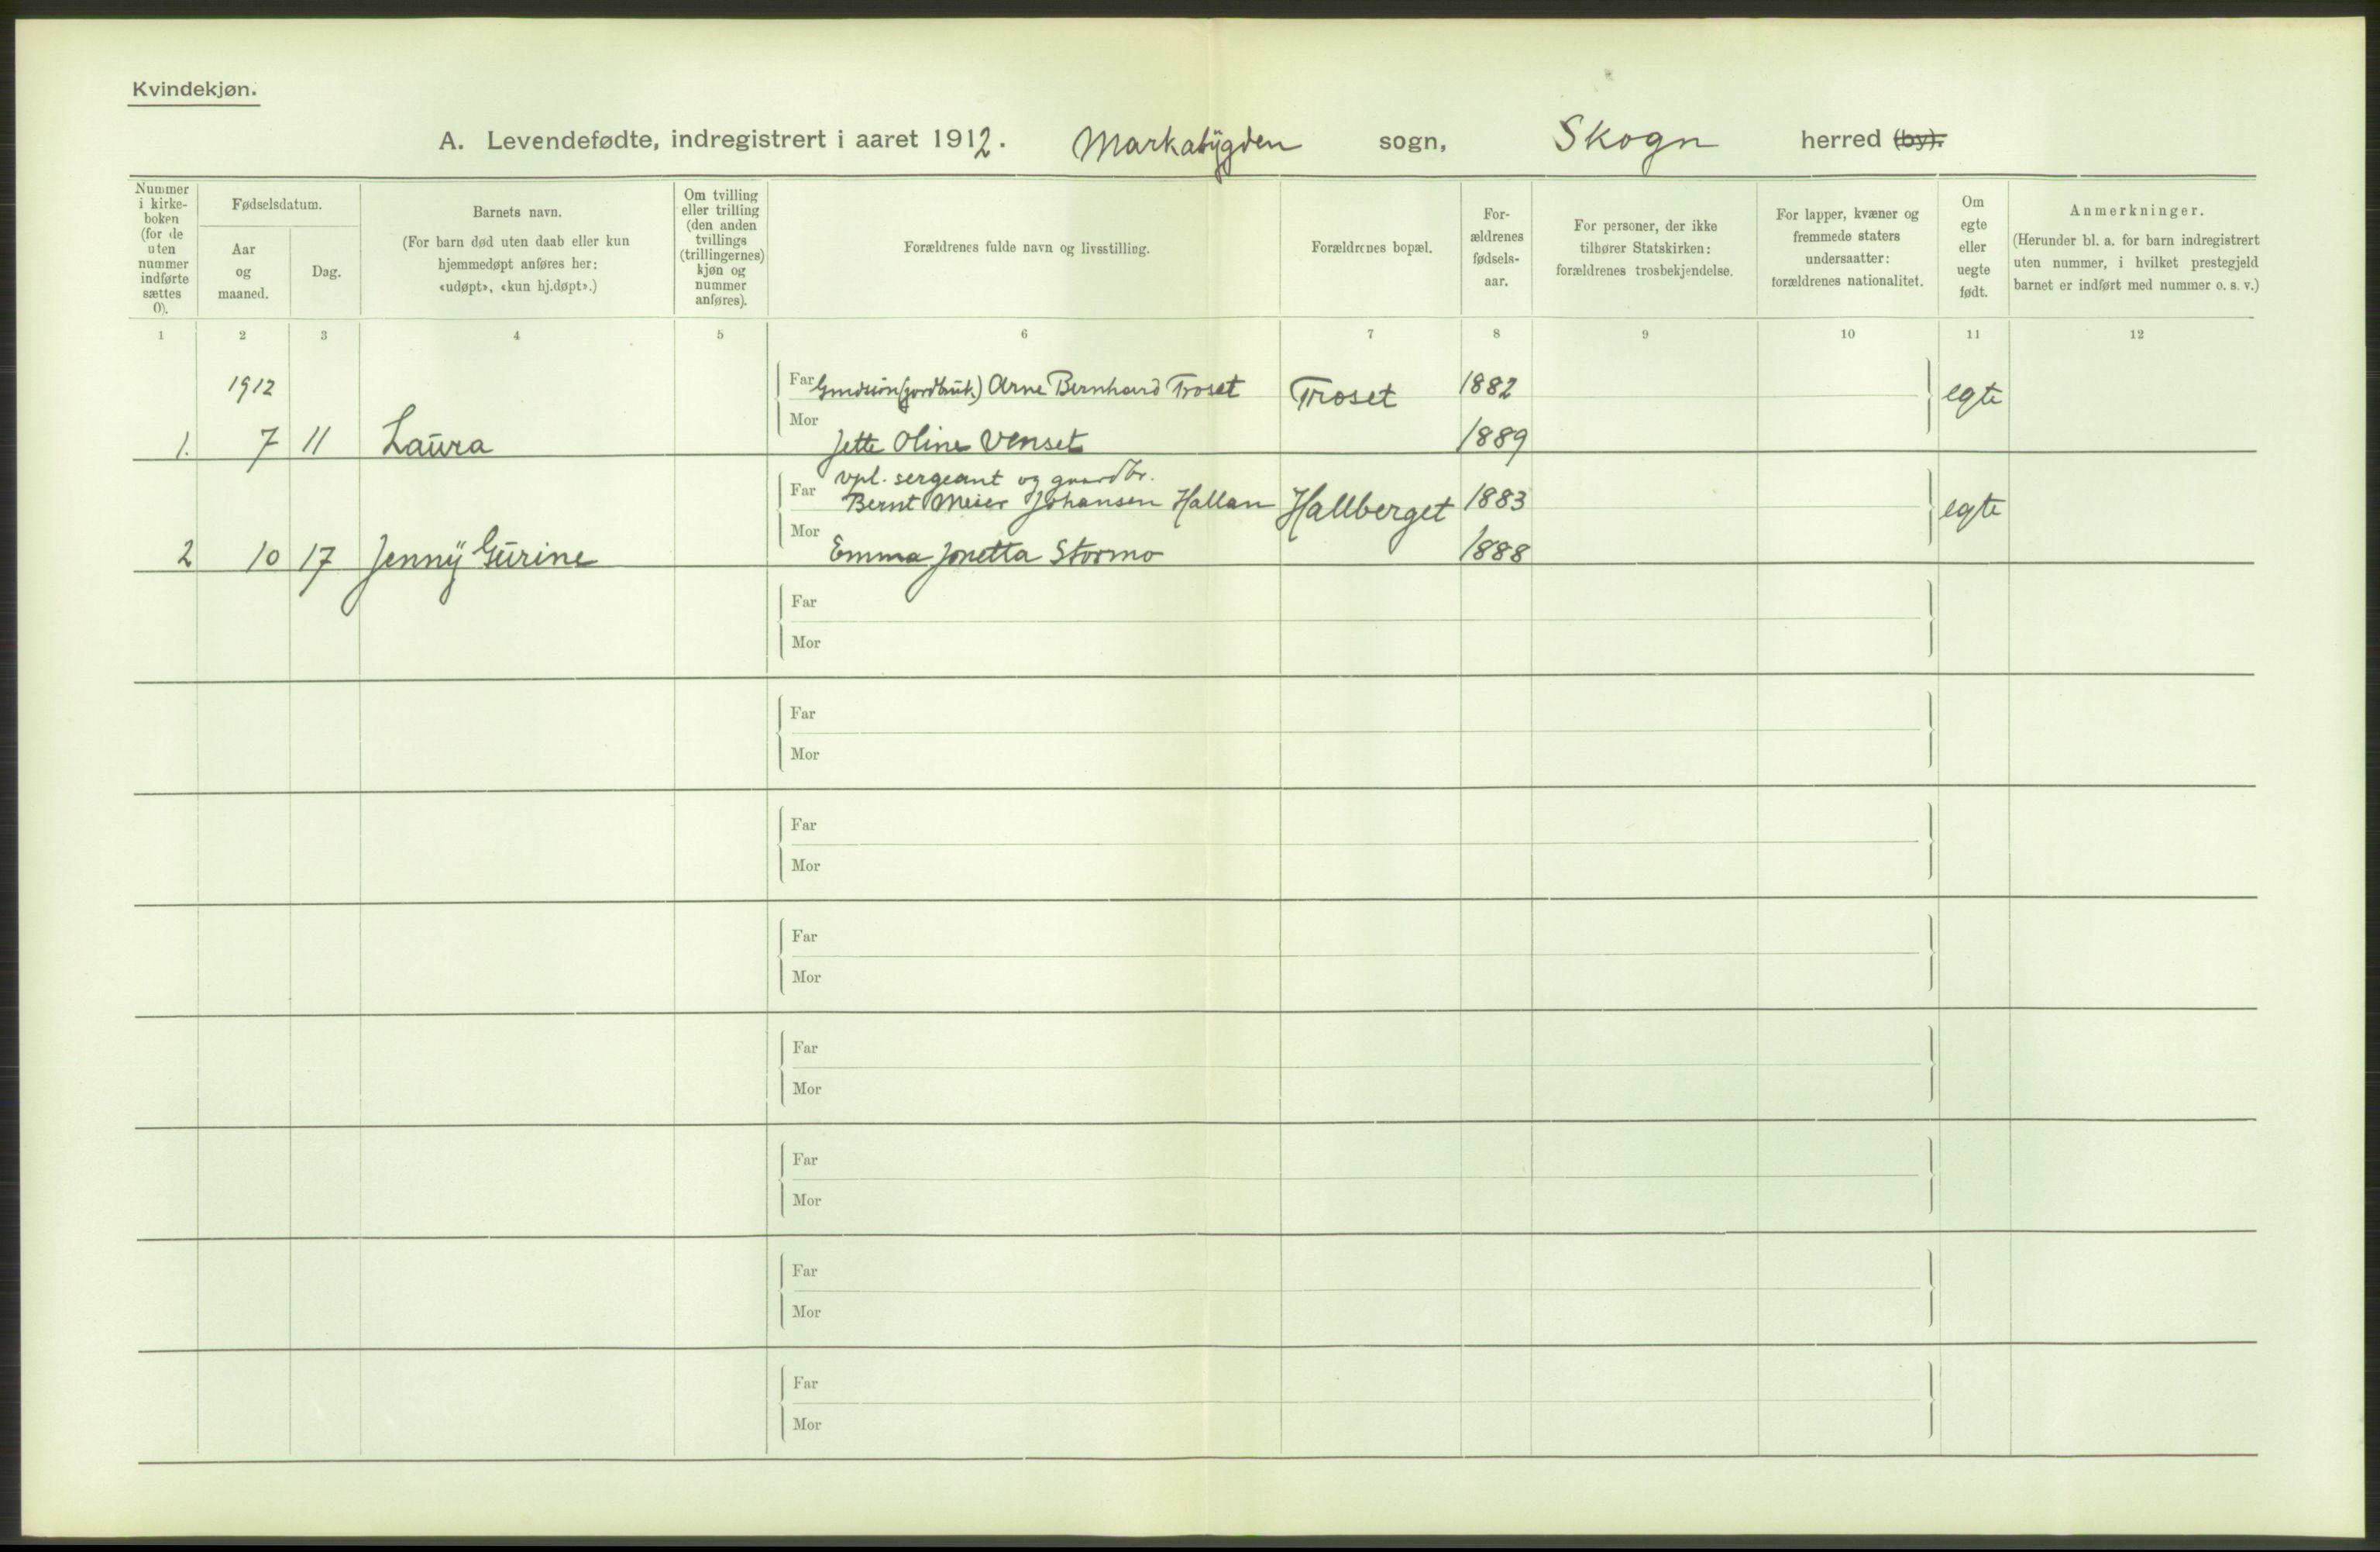 Kvindekjøn.
A. Levendefødte, indregistrert i aaret 1912. Markabygden sogn, Skogn herred (by).
Nummer
i kirke-
boken
(for de
uten
nummer
indførte
sættes
0).
Fødselsdatum.
Aar
og
maaned.
Dag.
Barnets navn.
(For barn død uten daab eller kun
hjemmedøpt anføres her:
«udøpt», «kun hj.døpt».)
Om tvilling
eller trilling
(den anden
tvillings
(trillingernes)
kjøn og
nummer
anføres).
Forældrenes fulde navn og livsstilling.
Forældrenes bopæl.
For-
ældrenes
fødsels-
aar.
For personer, der ikke
tilhører Statskirken:
forældrenes trosbekjendelse.
For lapper, kvæner og
fremmede staters
undersaatter:
forældrenes nationalitet.
Om
egte
eller
uegte
født.
Anmerkninger.
(Herunder bl. a. for barn indregistrert
uten nummer, i hvilket prestegjeld
barnet er indført med nummer o. s. v.)
1 2 3 4 5 6 7 8 9 10 11 12
1912 Far (jordbruk.) Arne Bernhard Troset Troset 1882 egte
1. 7 11 Laura Mor Jette Oline Venset 1889
vpl. sergeant og gaardbr.
Far Bernt Meier Johansen Hallan Hallberget 1883 egte
2 10 17 Jenny Gurine Mor Emma Jonetta Stormo 1888
Far
Mor
Far
Mor
Far
Mor
Far
Mor
Far
Mor
Far
Mor
Far
Mor
Far
Mor